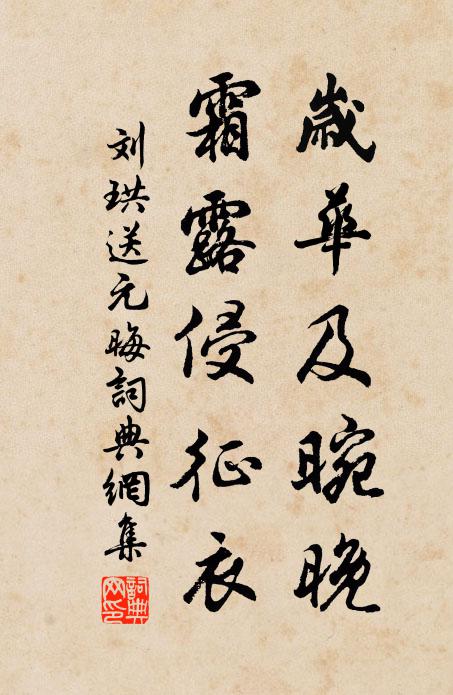 歲華及晼晚
霜露侵征衣
刘珙送元晦詞典網集
詞典网印